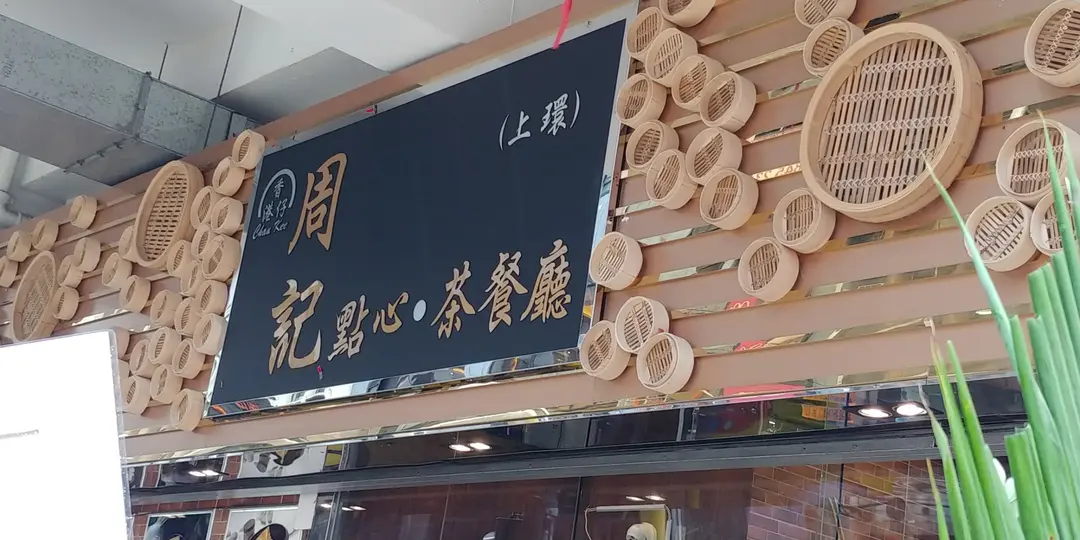 (上環)
香
港仔
Chau Kee
周
記點心·茶餐廳